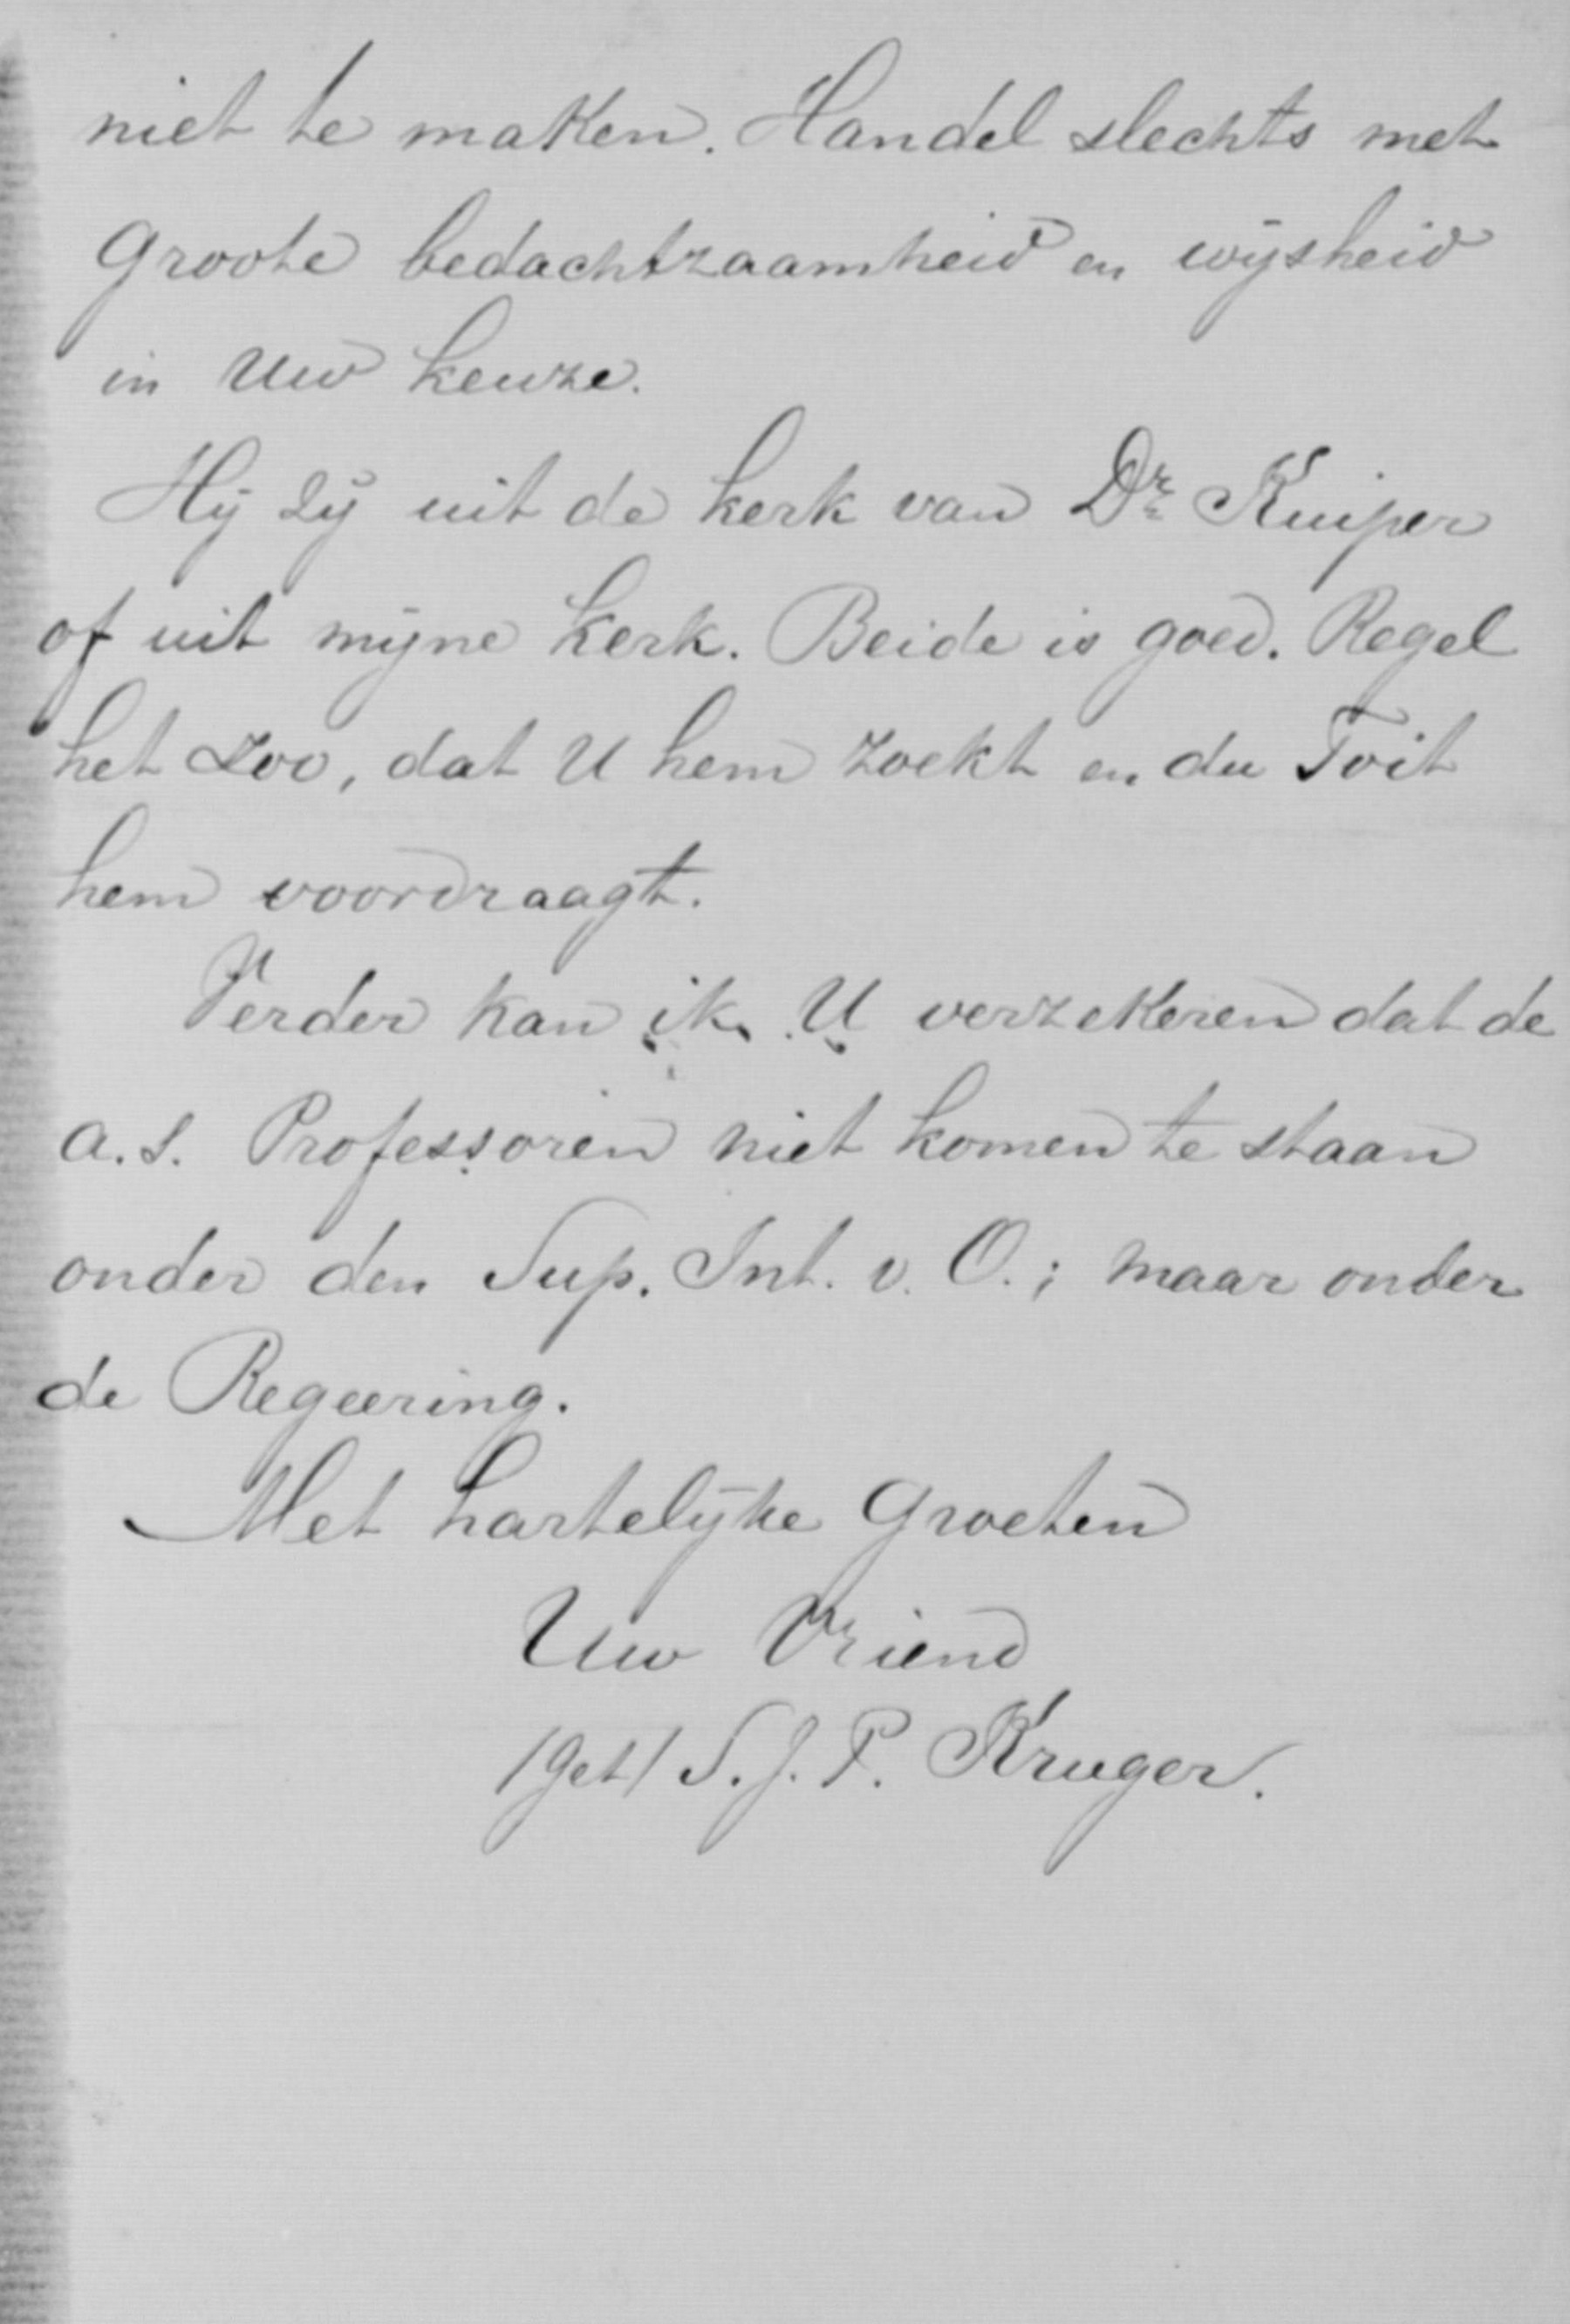 niet te maken. Handel slechts met
groote bedachtzaamheid en wijsheid
in Uw keuze.
Hij zij uit de kerk van Dr Kuiper
of uit mijne kerk. Beide is goed. Regel
het zoo, dat U hem zoekt en du Toit
hem voordraagt.
Verder kan ik U verzekeren dat de
a.s. Professoren niet komen te staan
onder den Sup. Int. v. O.; maar onder
de Regeering.
Met hartelijke groeten
Uw Vriend
/get/ S. J. P. Kruger.